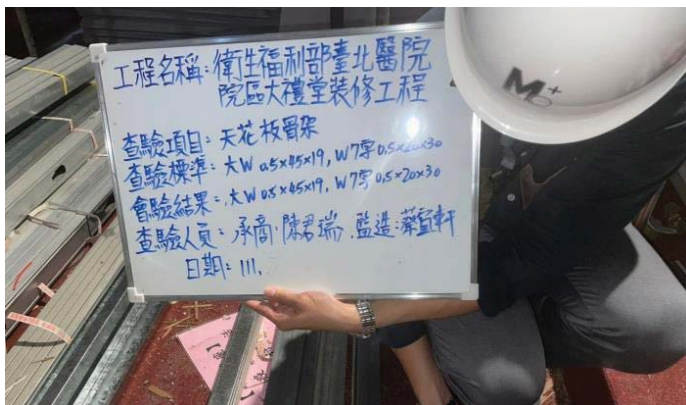 工程名稱：衛生福利部臺北醫院
院區大禮堂裝修工程
查驗項目：天花板骨架
查驗標準：大W 0.5×45×19, W7字 0.5×20×30
會驗結果：大W 0.5×45×19, W7字 0.5×20×30
查驗人員：承商：陳君瑞、監造：蔡宜軒
日期：111.
M+